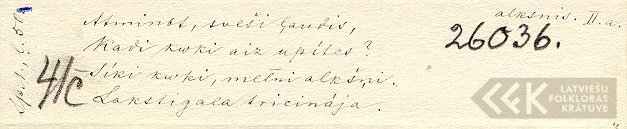 alksnis. II.a.
26036.
Atminət, sveši ļaudis,
Kādi koki aiz upītes?
Sīki koki, melni alkšņi.
Lakstīgala tricināja.
4/c
LATVIEŠU
FOLKLORAS
KRĀTUVE